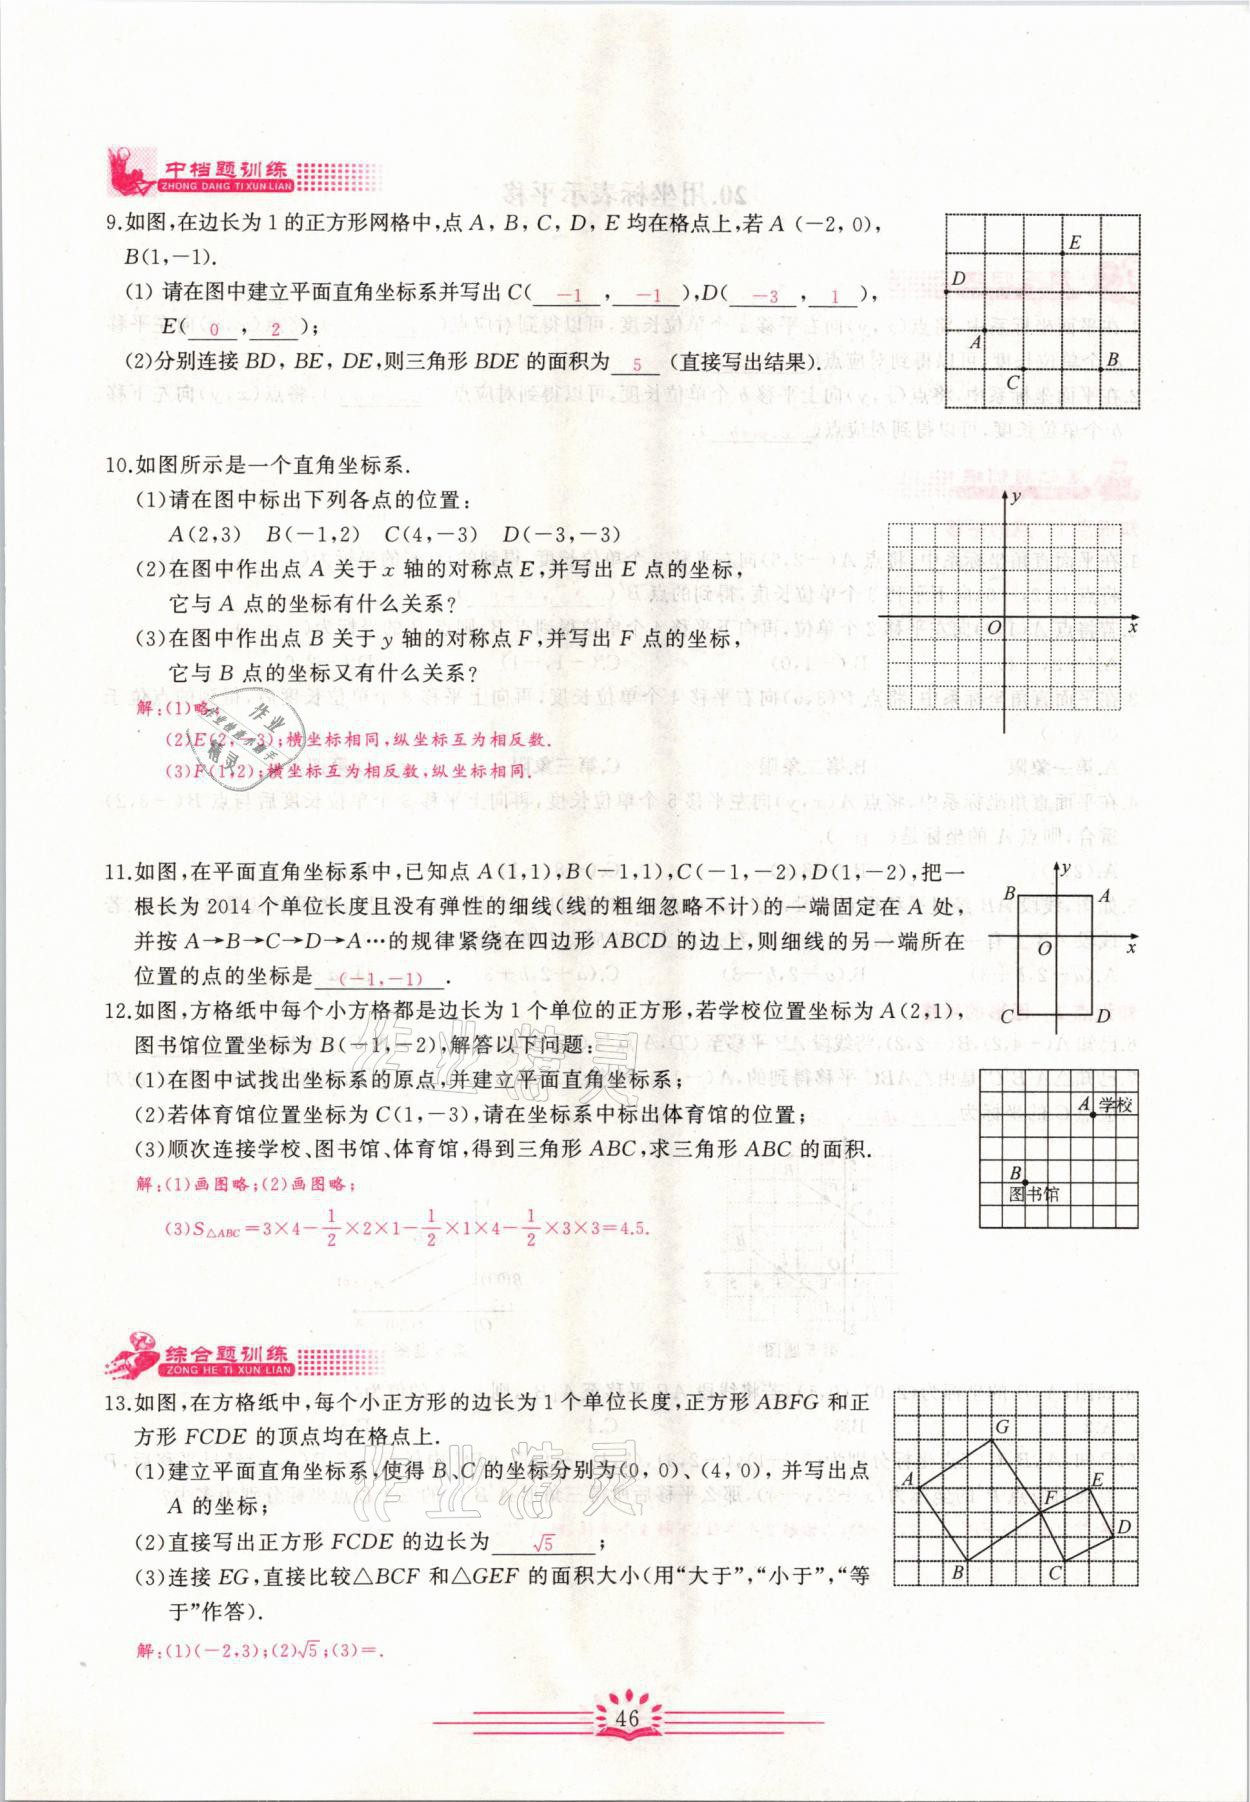 中档题训练
ZHONG DANG TI XUN LIAN
9.如图,在边长为1的正方形网格中,点A,B,C,D,E均在格点上,若A(-2,0),
B(1,-1).
(1)请在图中建立平面直角坐标系并写出C( -1 , -1 ),D( -3 , 1 ),
E( 0 , 2 );
(2)分别连接BD,BE,DE,则三角形BDE的面积为 5 (直接写出结果).
E
D
A
B
C
10.如图所示是一个直角坐标系.
(1)请在图中标出下列各点的位置:
A(2,3) B(-1,2) C(4,-3) D(-3,-3)
(2)在图中作出点A关于x轴的对称点E,并写出E点的坐标,
它与A点的坐标有什么关系?
(3)在图中作出点B关于y轴的对称点F,并写出F点的坐标,
它与B点的坐标又有什么关系?
解:(1)略;
(2)E(2,-3);横坐标相同,纵坐标互为相反数.
(3)F(1,2);横坐标互为相反数,纵坐标相同.
y
O
x
11.如图,在平面直角坐标系中,已知点A(1,1),B(-1,1),C(-1,-2),D(1,-2),把一
根长为2014个单位长度且没有弹性的细线(线的粗细忽略不计)的一端固定在A处,
并按A→B→C→D→A…的规律紧绕在四边形ABCD的边上,则细线的另一端所在
位置的点的坐标是 (-1,-1) .
y
B
A
O
x
C
D
12.如图,方格纸中每个小方格都是边长为1个单位的正方形,若学校位置坐标为A(2,1),
图书馆位置坐标为B(-1,-2),解答以下问题:
(1)在图中试找出坐标系的原点,并建立平面直角坐标系;
(2)若体育馆位置坐标为C(1,-3),请在坐标系中标出体育馆的位置;
(3)顺次连接学校、图书馆、体育馆,得到三角形ABC,求三角形ABC的面积.
解:(1)画图略;(2)画图略;
(3)S△ABC=3×4-1/2×2×1-1/2×1×4-1/2×3×3=4.5.
A 学校
B
图书馆
综合题训练
ZONG HE TI XUN LIAN
13.如图,在方格纸中,每个小正方形的边长为1个单位长度,正方形ABFG和正
方形FCDE的顶点均在格点上.
(1)建立平面直角坐标系,使得B、C的坐标分别为(0,0)、(4,0),并写出点
A的坐标;
(2)直接写出正方形FCDE的边长为 √5 ;
(3)连接EG,直接比较△BCF和△GEF的面积大小(用“大于”,“小于”,“等
于”作答).
解:(1)(-2,3);(2)√5;(3)=.
G
A
E
F
D
B
C
作业精灵
作业精灵
46